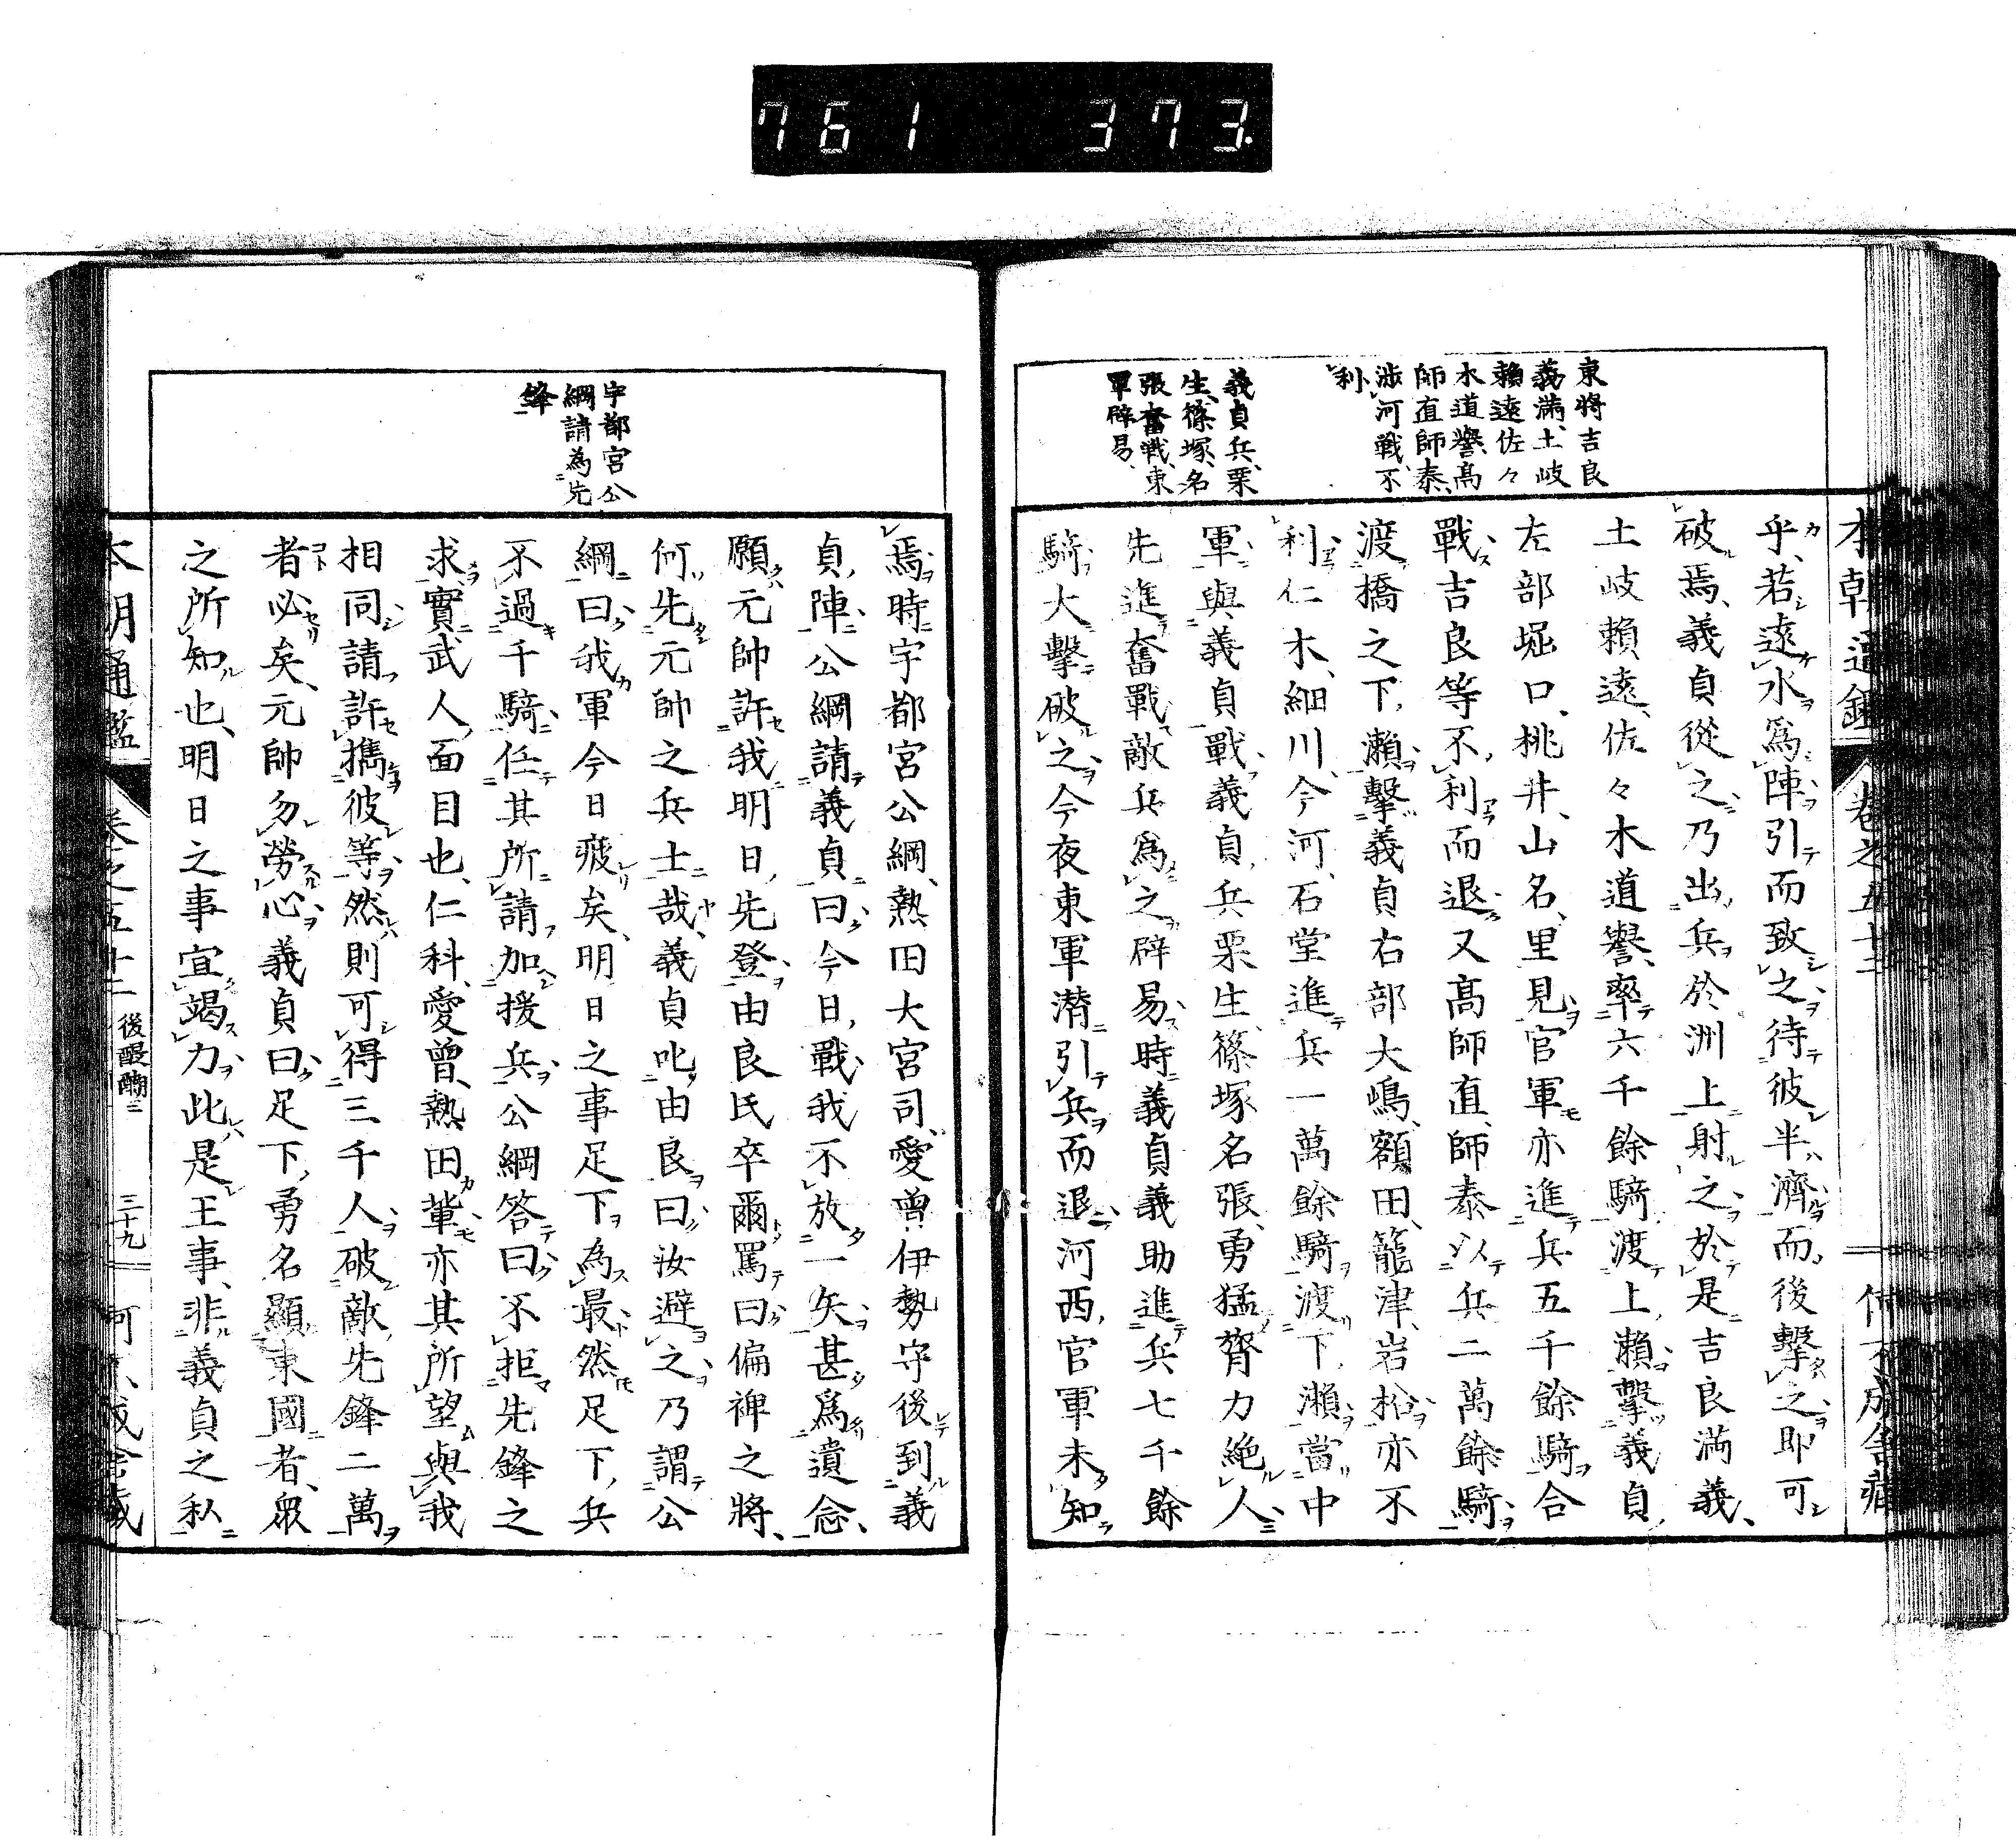 761 373.
東將吉良
義滿、土岐
賴遠佐々
木道譽、高
師直師泰、
涉河戰、不
利
義貞兵、栗
生、篠塚、名
張奮戰、東
軍辟易、
乎、若遠水爲陣引而致之待彼半濟而後擊之即可
破焉、義貞從之乃出兵於洲上射之於是吉良満義、
土岐賴遠、佐々木道譽、率六千餘騎渡上瀨擊義貞
左部堀口、桃井、山名、里見官軍亦進兵五千餘騎合
戰吉良等不利而退又髙師直、師泰以兵二萬餘騎
渡橋之下瀨擊義貞右部大嶋、額田、籠津、岩松亦不
利仁木、細川、今河、石堂進兵一萬餘騎渡下瀨當中
軍與義貞戰義貞兵栗生、篠塚名張、勇猛膂力絶人
先進奮戰敵兵爲之辟易時義貞義助進兵七千餘
騎大擊破之今夜東軍潛引兵而退河西官軍未知
宇都宮公
綱請為先
鋒
焉時宇都宮公綱、熱田大宮司、愛曾伊勢守後到義
貞陣公綱請義貞曰今日戰我不放一矢甚爲遺念
願元帥許我明日先登由良氏卒爾罵曰偏裨之將、
何先元帥之兵士哉義貞叱由良曰汝避之乃謂公
綱曰我軍今日疲矣、明日之事足下為最然足下兵
不過千騎任其所請加援兵公綱答曰不拒先鋒之
求實武人面目也、仁科、愛曾、熱田輩亦其所望與我
相同請許携彼等然則可得三千人破敵先鋒二萬
者必矣、元帥勿勞心義貞曰足下勇名顯東國者、衆
之所知也、明日之事宜竭力此是王事、非義貞之私
後醍醐三
三十九